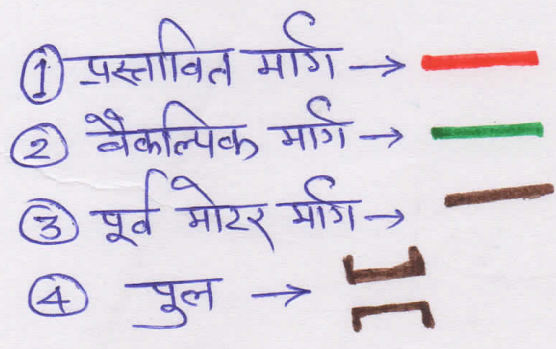 ① प्रस्तावित मार्ग →
② वैकल्पिक मार्ग →
③ पूर्व मोटर मार्ग →
④ पुल →